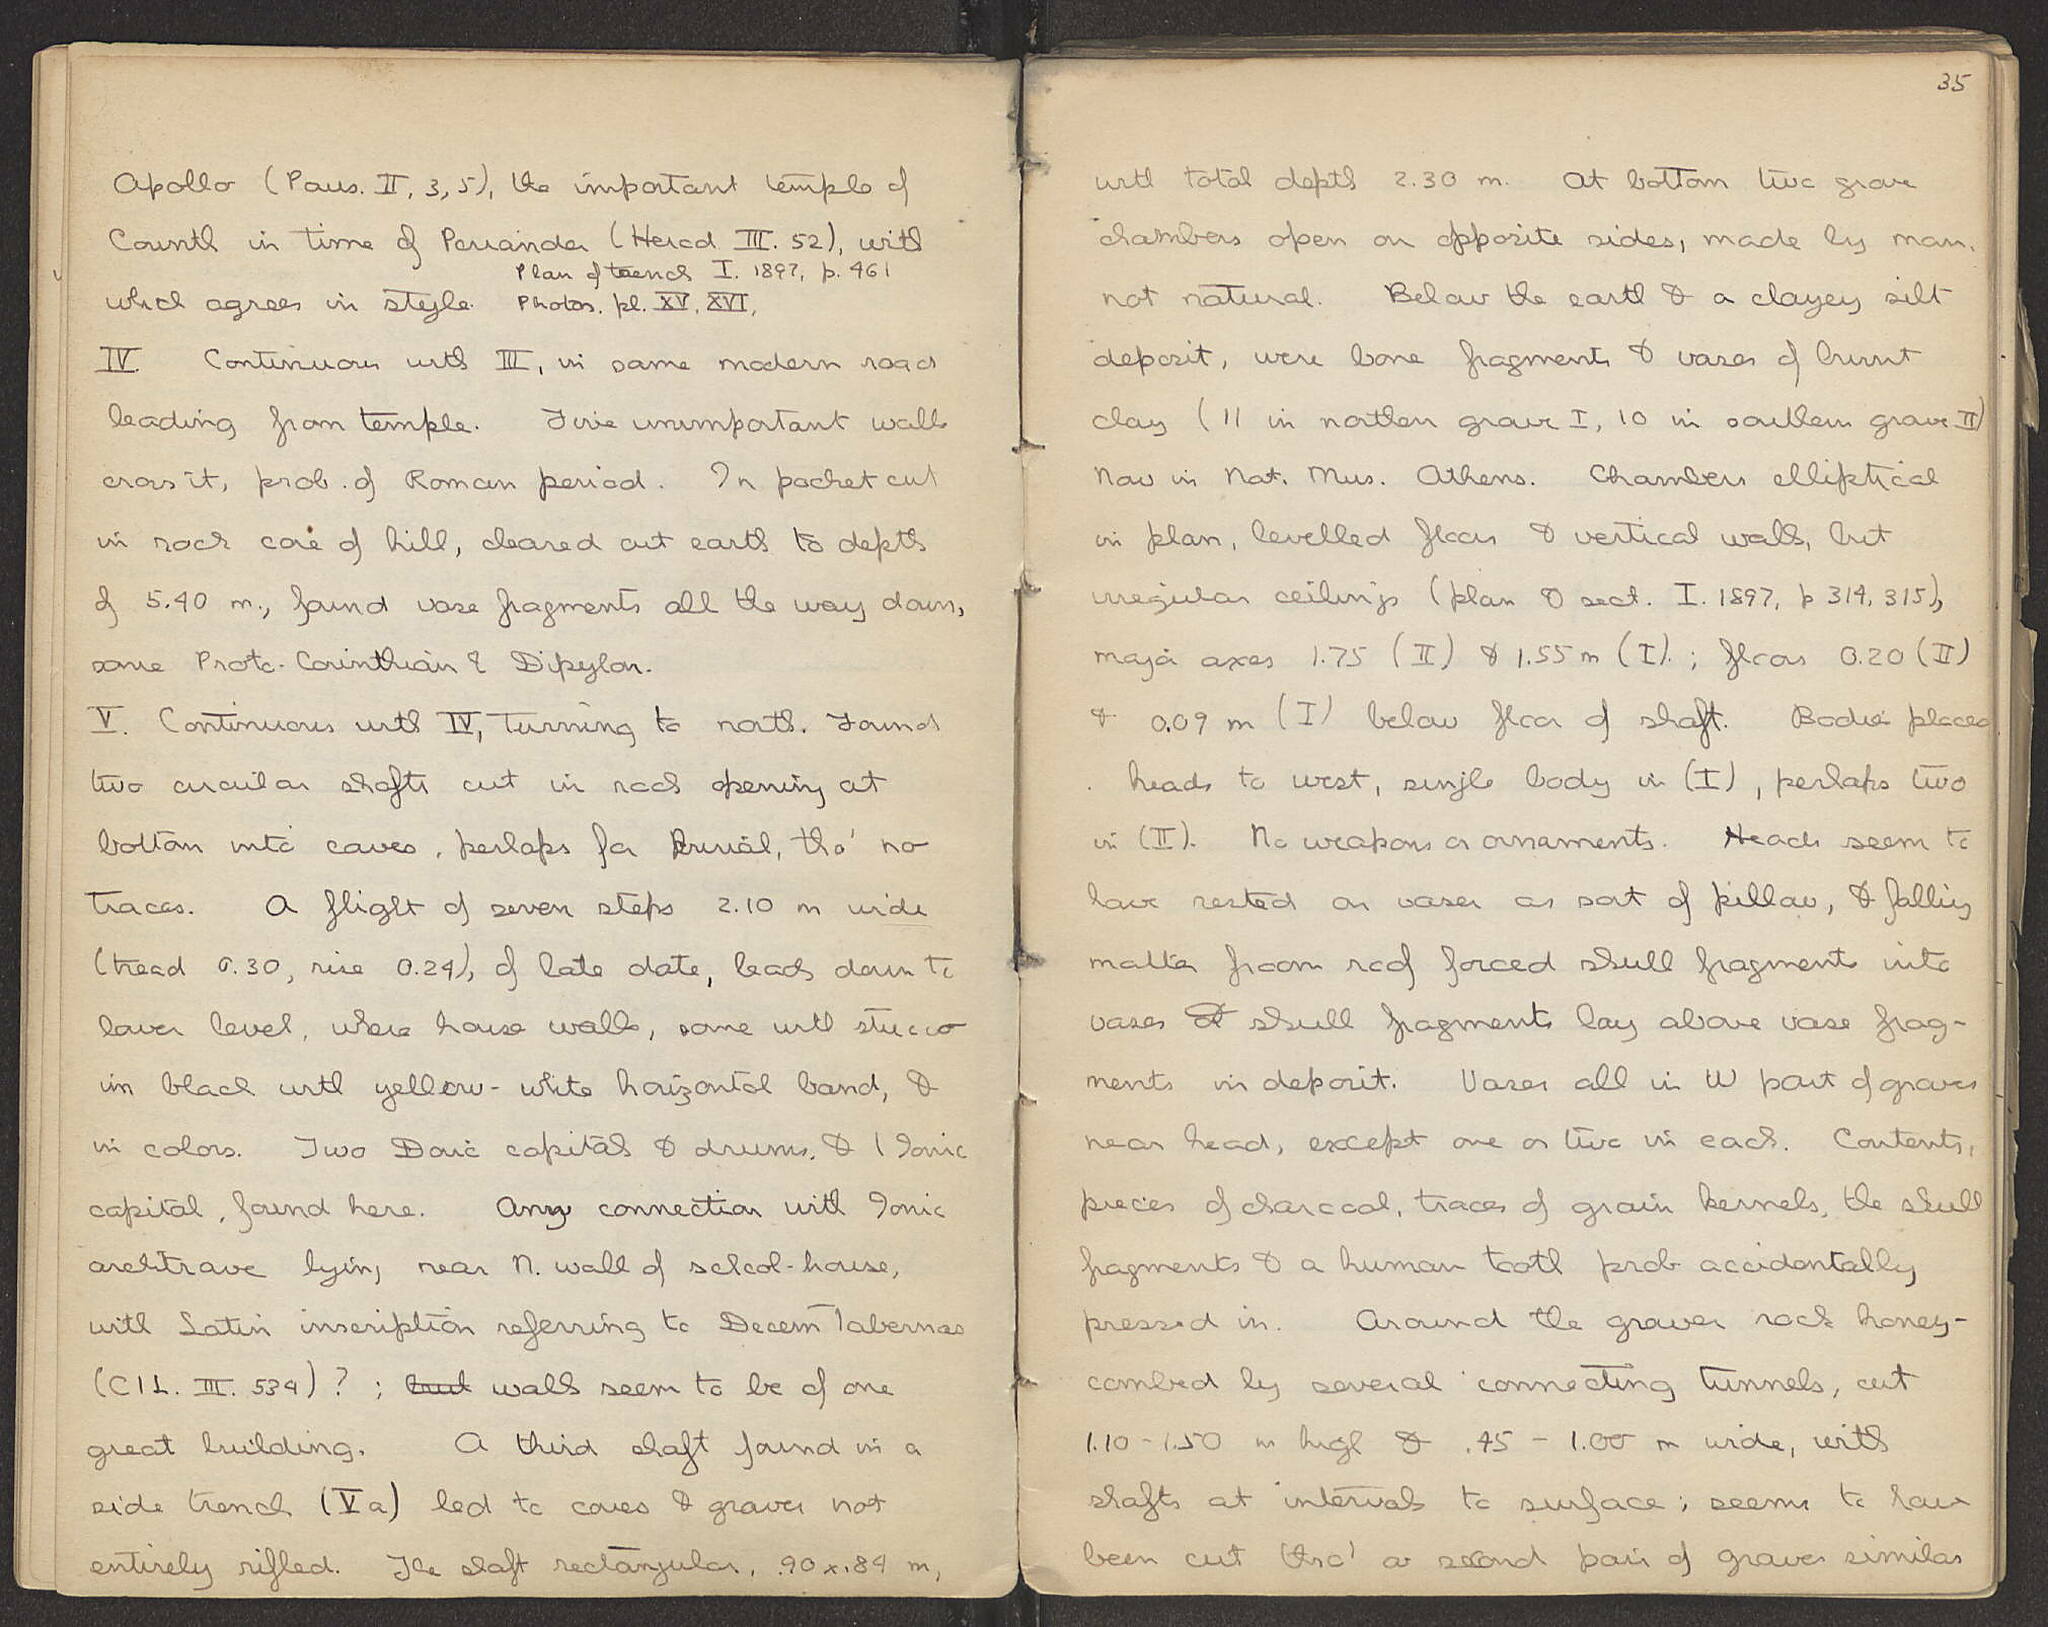 Apollo (Paus. II, 3, 5), the important temple of
Corinth in time of Periander (Herod III. 52), with
Plan of trench I. 1897, p. 461
which agrees in style. Photos. pl. XV, XVI,
IV. Continuous with III, in same modern road
leading from temple. Five unimportant walls
cross it, prob. of Roman period. In pocket cut
in rock core of hill, cleared out earth to depth
of 5.40 m., found vase fragments all the way down,
some Proto-Corinthian & Dipylon.
V. Continuous with IV, turning to north. Found
two circular shafts cut in rock opening at
bottom into caves, perhaps for burial, tho' no
traces. A flight of seven steps 2.10 m wide
(tread 0.30, rise 0.24), of late date, leads down to
lower level, where house walls, some with stucco
in black with yellow-white horizontal band, &
in colors. Two Doric capitals & drums, & 1 Ionic
capital, found here. Any connection with Ionic
architrave lying near N. wall of school-house,
with Latin inscription referring to Decem Tabernae
(CIL. III. 534) ? ; but walls seem to be of one
great building. A third shaft found in a
side trench (Va) led to caves & graves not
entirely rifled. The shaft rectangular, .90 x .84 m,
35
with total depth 2.30 m. At bottom two grave
chambers open on opposite sides, made by man,
not natural. Below the earth & a clayey silt
deposit, were bone fragments & vases of burnt
clay (11 in northern grave I, 10 in southern grave II)
Now in Nat. Mus. Athens. Chambers elliptical
in plan, levelled floors & vertical walls, but
irregular ceilings (plan & sect. I. 1897, p 314, 315),
major axes 1.75 (II) & 1.55 m (I). ; floors 0.20 (II)
& 0.09 m (I) below floor of shaft. Bodies placed
heads to west, single body in (I), perhaps two
in (II). No weapons or ornaments. Heads seem to
have rested on vases as sort of pillow, & falling
matter from roof forced skull fragments into
vases & skull fragments lay above vase frag-
ments in deposit. Vases all in W part of graves
near head, except one or two in each. Contents,
pieces of charcoal, traces of grain kernels, the skull
fragments & a human tooth prob accidentally
pressed in. Around the graves rock honey-
combed by several connecting tunnels, cut
1.10 - 1.50 m high & .45 - 1.00 m wide, with
shafts at intervals to surface; seems to have
been cut thro' a second pair of graves similar